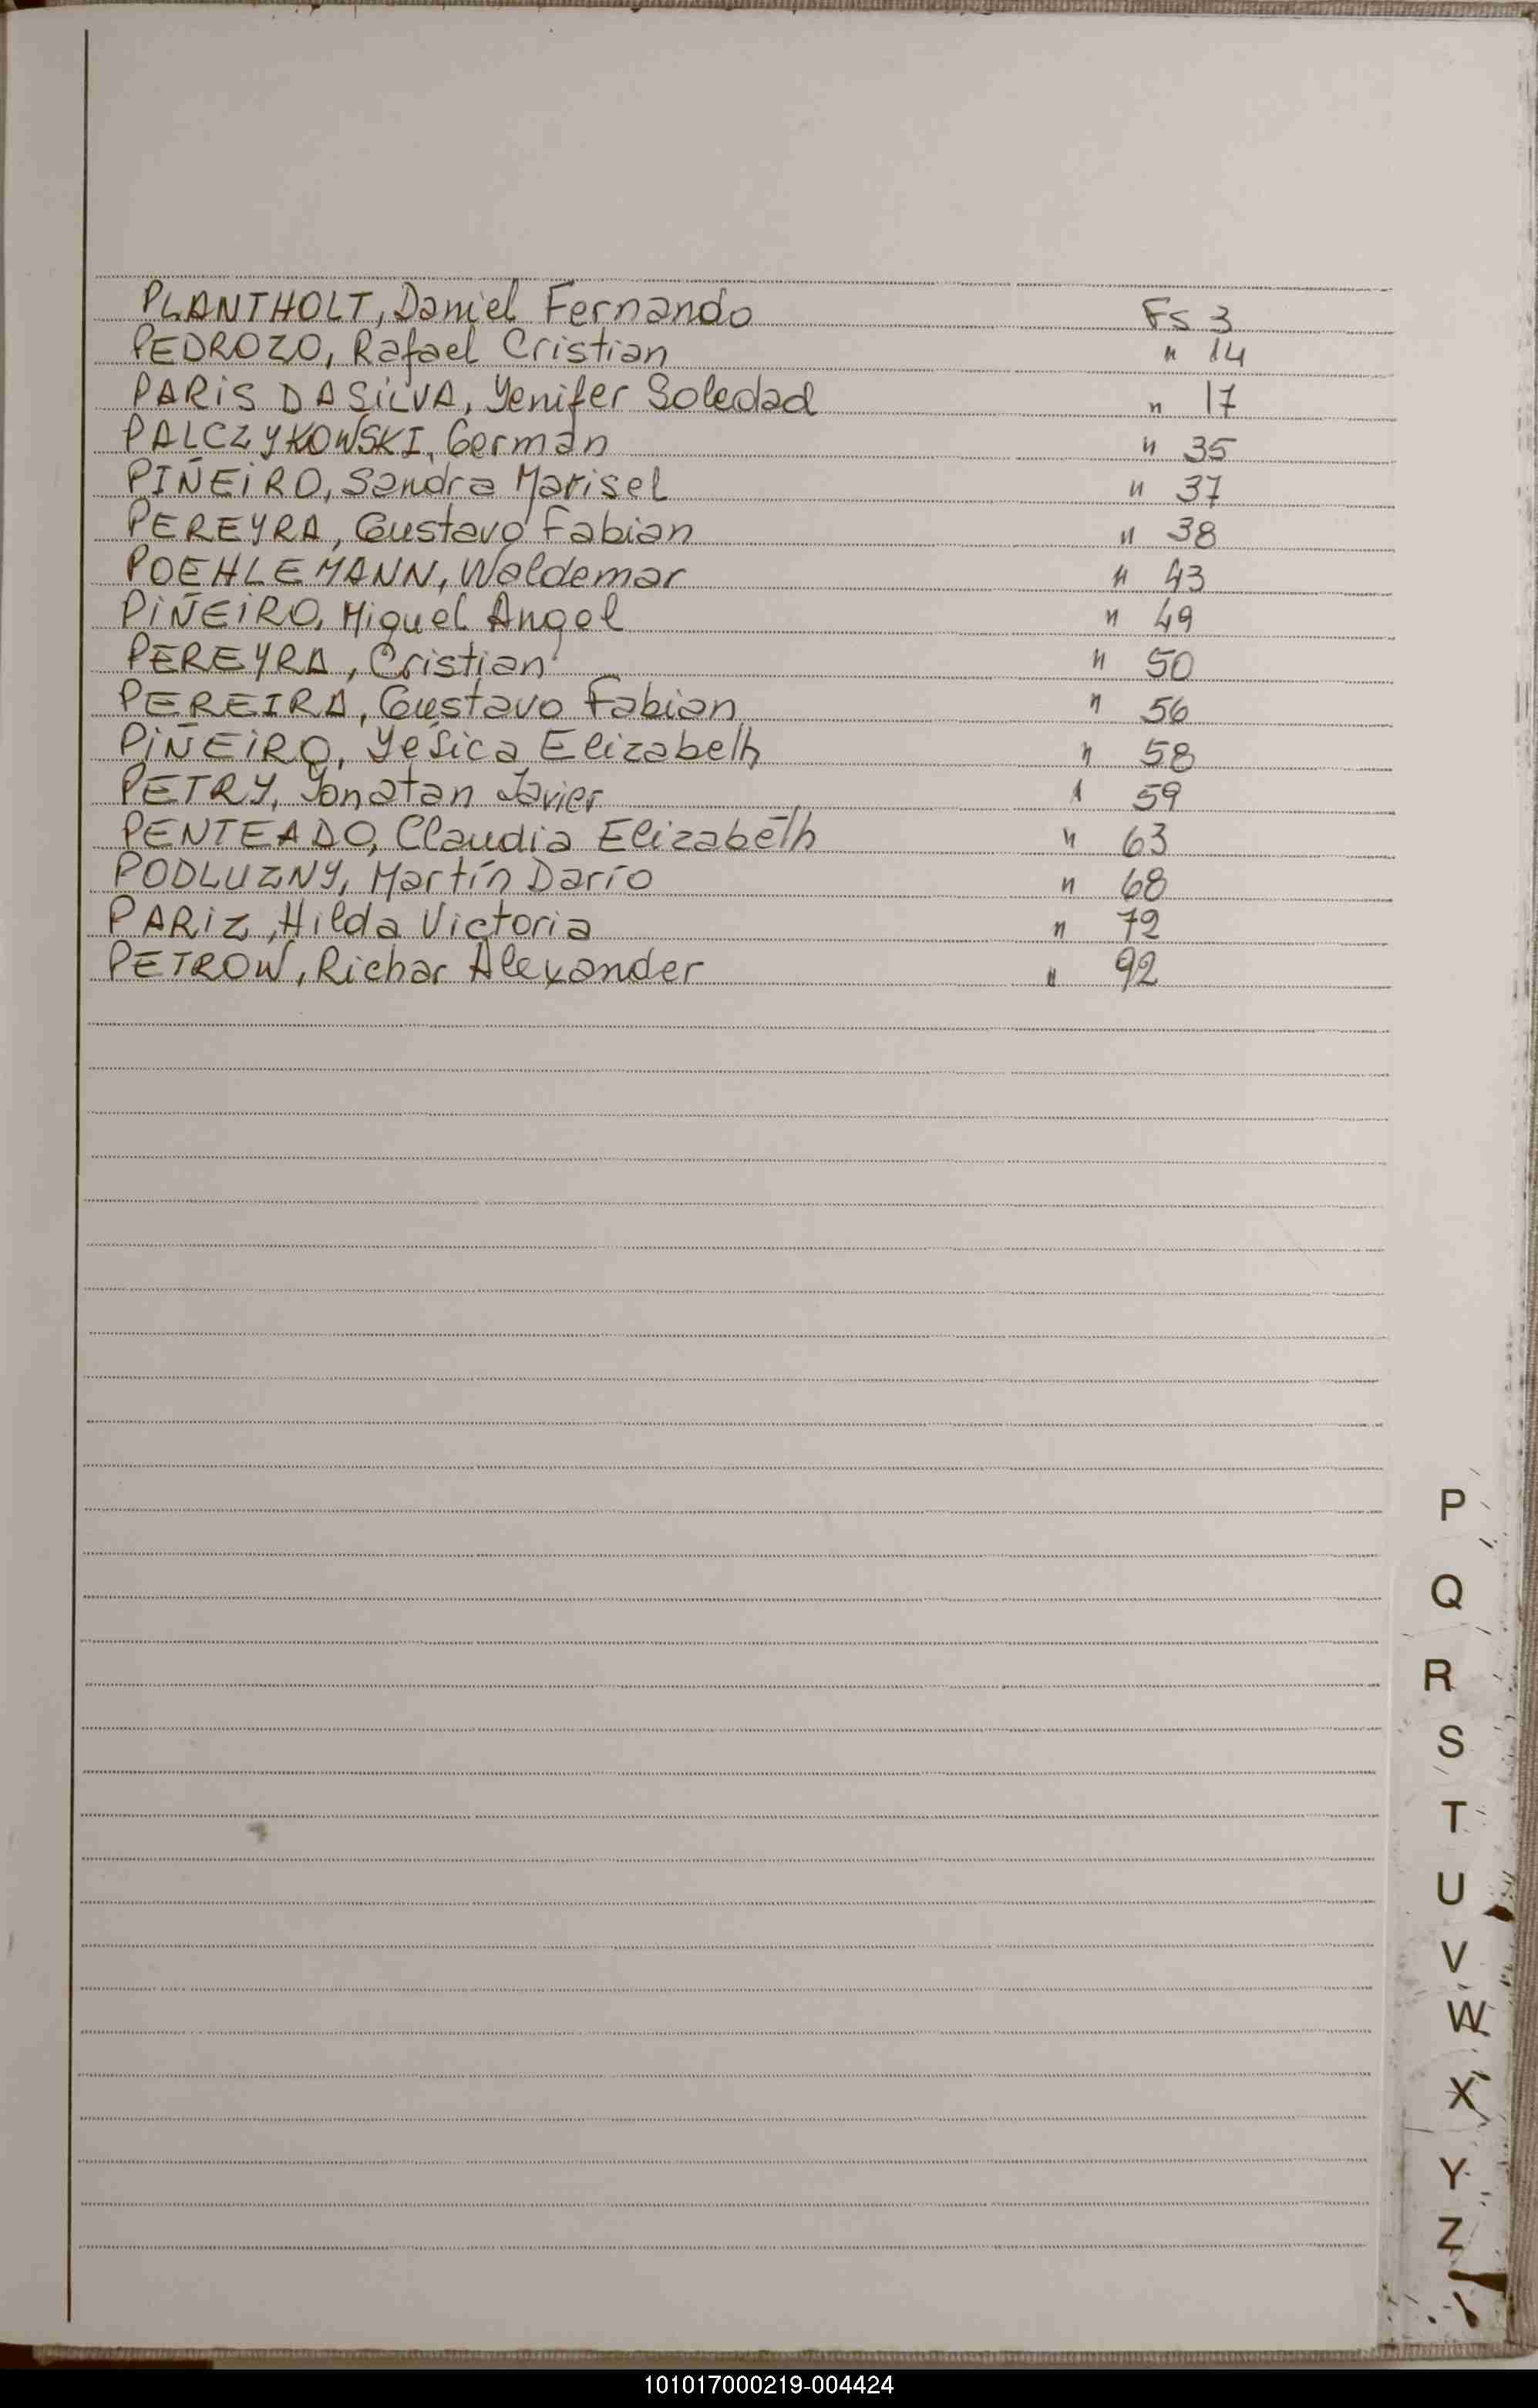 PLANTHOLT, Daniel Fernando Fs 3
PEDROZO, Rafael Cristian " 14
PARIS DASILVA, Yenifer Soledad " 17
PALCZYKOWSKI, German " 35
PIÑEIRO, Sandra Marisel " 37
PEREYRA, Gustavo Fabian " 38
POEHLEMANN, Waldemar " 43
PIÑEIRO, Miguel Angel " 49
PEREYRA, Cristian " 50
PEREIRA, Gustavo Fabian " 56
PIÑEIRO, Yesica Elizabeth " 58
PETRY, Yonatan Javier " 59
PENTEADO, Claudia Elizabeth " 63
PODLUZNY, Martín Darío " 68
PARIZ, Hilda Victoria " 72
PETROW, Richar Alexander " 92
P
Q
R
S
T
U
V
W
X
Y
Z
101017000219-004424